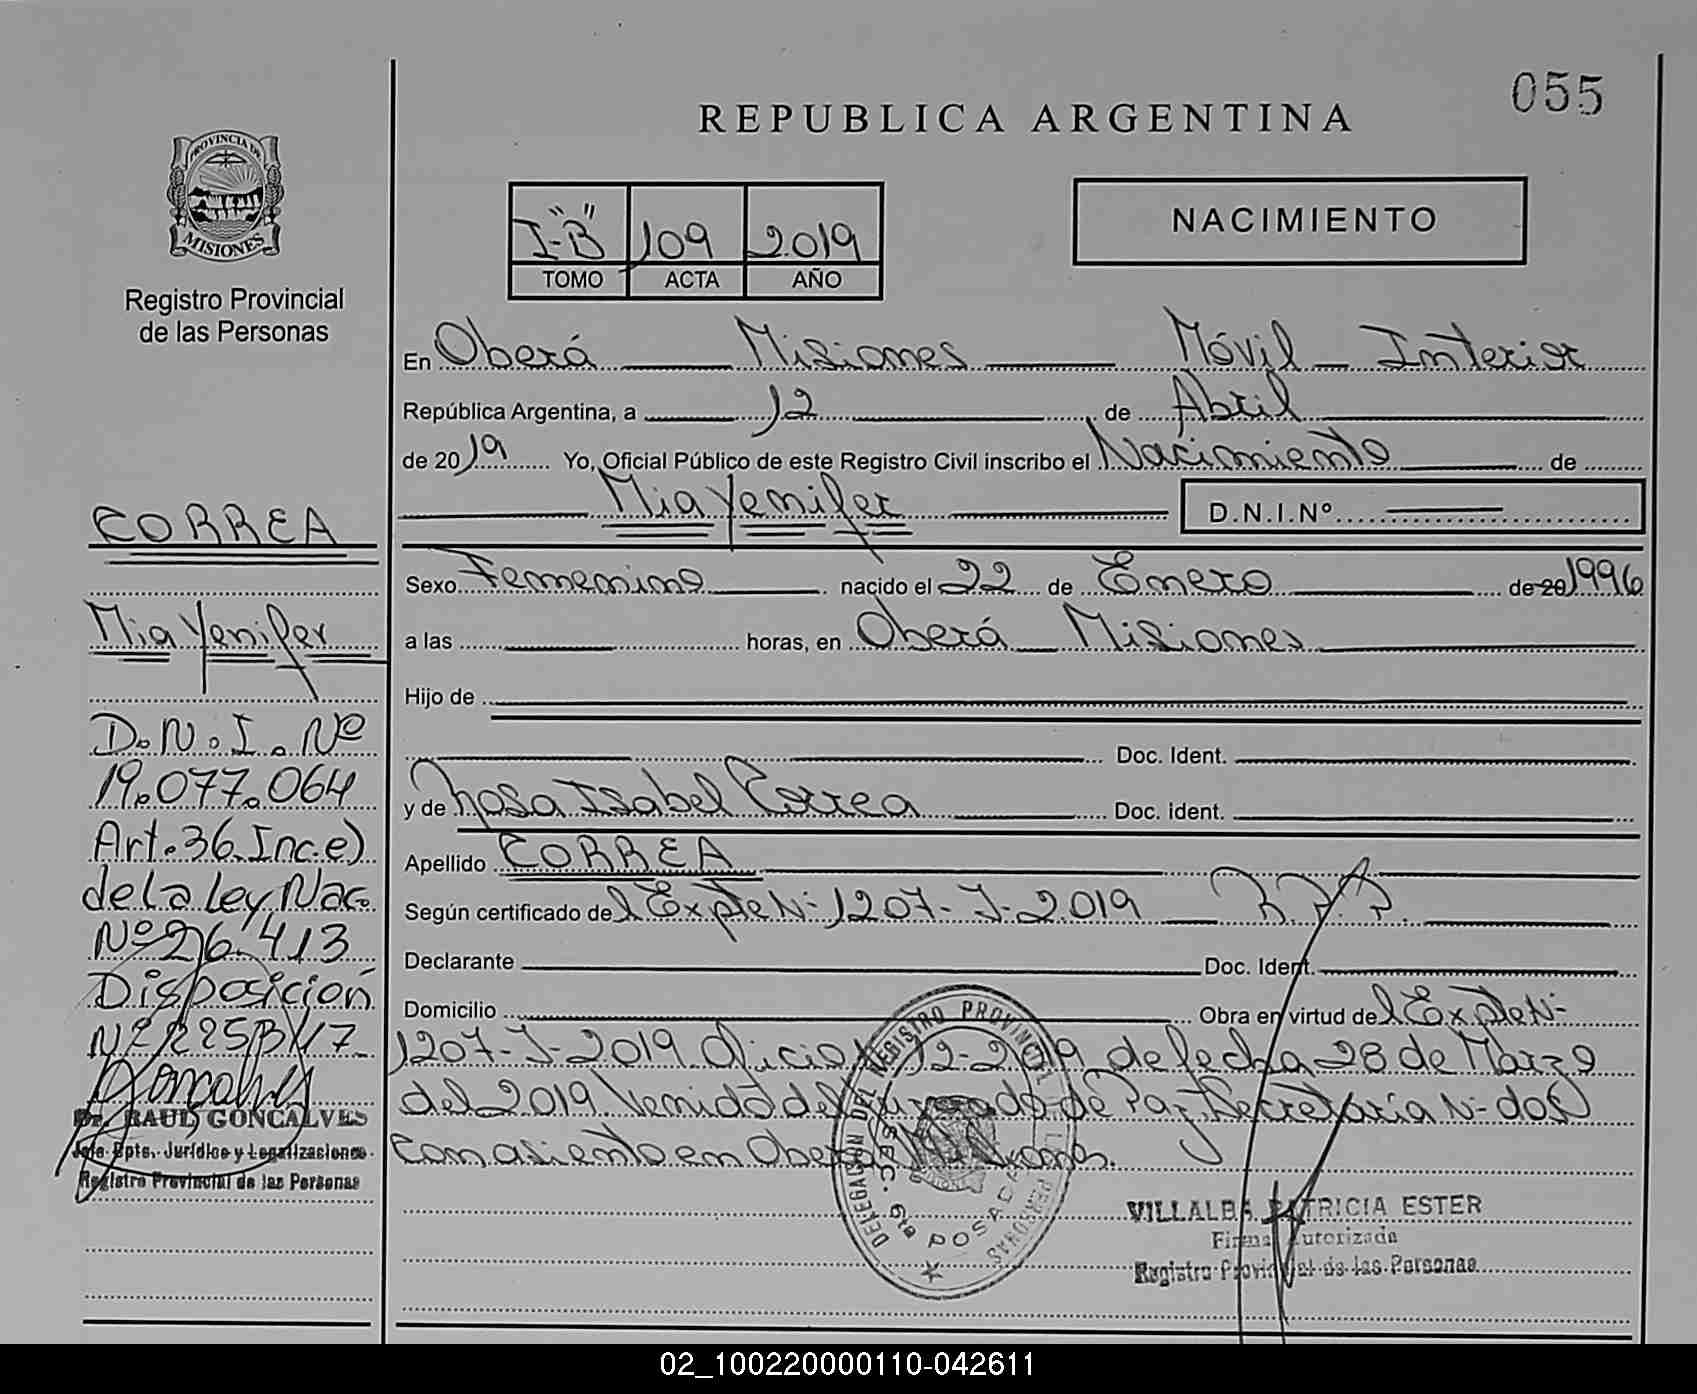 055
REPUBLICA ARGENTINA
PROVINCIA DE
MISIONES
Registro Provincial
de las Personas
I-"B" 109 2.019
TOMO ACTA AÑO
NACIMIENTO
En Oberá Misiones Móvil - Interior
República Argentina, a 12 de Abril
de 2019 Yo, Oficial Público de este Registro Civil inscribo el Nacimiento de
Mia Yenifer
D.N.I.Nº
Sexo Femenino nacido el 22 de Enero de 20 1996
a las horas, en Oberá Misiones
Hijo de
Doc. Ident.
y de Rosa Isabel Correa Doc. ident.
Apellido CORREA
Según certificado del Expte N- 1207-J-2.019 R.P.P.
Declarante Doc. Ident.
Domicilio Obra en virtud del Expte N-
1207-J-2.019 Oficio 12-2019 de fecha 28 de Marzo
del 2.019 Venido del Juzgado de Paz, Secretaría N- dos
con asiento en Oberá Misiones.
CORREA
Mia Yenifer
D.N.I. Nº
19.077.064
Art. 36. Inc. e)
de la Ley Nac.
Nº 26.413
Disposición
Nº 2258/17
Dr. RAUL GONCALVES
Jefe Dpto. Jurídico y Legalizaciones
Registro Provincial de las Personas
DELEGACION DEL REGISTRO PROVINCIAL DE LAS PERSONAS
SEC. 6ta POSADAS
VILLALBA PATRICIA ESTER
Firma Autorizada
Registro Provincial de las Personas
02_100220000110-042611